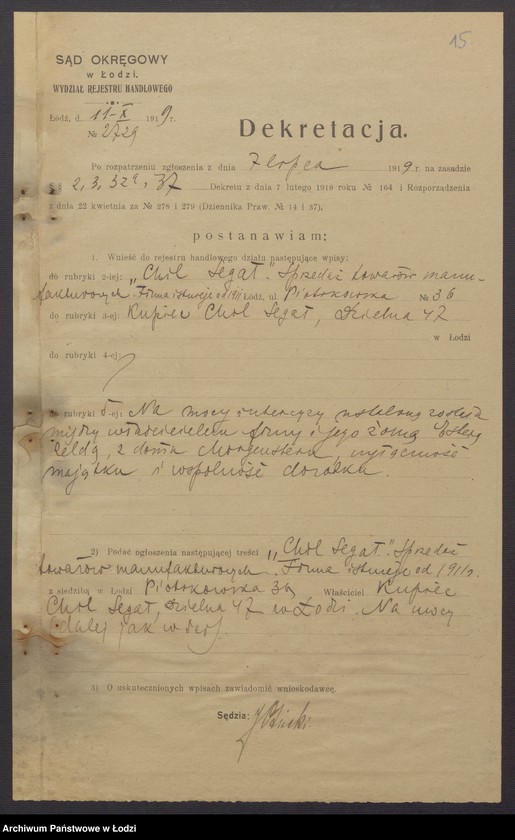 15
SĄD OKRĘGOWY
w Łodzi.
WYDZIAŁ REJESTRU HANDLOWEGO
Łódź, d. 11-X 1919 r.
№ 2729
Dekretacja.
Po rozpatrzeniu zgłoszenia z dnia 7 lipca 1919 r. na zasadzie
§§ 2, 3, 32a, 37 Dekretu z dnia 7 lutego 1919 roku № 164 i Rozporządzenia
z dnia 22 kwietnia za № 278 i 279 (Dziennika Praw. № 14 i 37),
postanawiam:
1. Wnieść do rejestru handlowego działu następujące wpisy:
do rubryki 2-iej: „Chil Segał". Sprzedaż towarów manu-
fakturowych. Firma istnieje od 1911 Łódź, ul. Piotrkowska № 36
do rubryki 3-ej: Kupiec Chil Segał, Dzielna 47
w Łodzi
do rubryki 4-ej:
do rubryki 5-ej: Na mocy intercyzy ustaloną została
między właścicielem firmy i jego żoną
z domu Morgenstern, wyłączność
majątku i wspólność dorobku.
2) Podać ogłoszenia następującej treści „Chil Segał". Sprzedaż
towarów manufakturowych. Firma istnieje od 1911 r.
z siedzibą w Łodzi Piotrkowska 36 Właściciel Kupiec
Chil Segał, Dzielna 47 w Łodzi. Na mocy
(dalej jak w
3) O uskutecznionych wpisach zawiadomić wnioskodawcę.
Sędzia:
Archiwum Państwowe w Łodzi